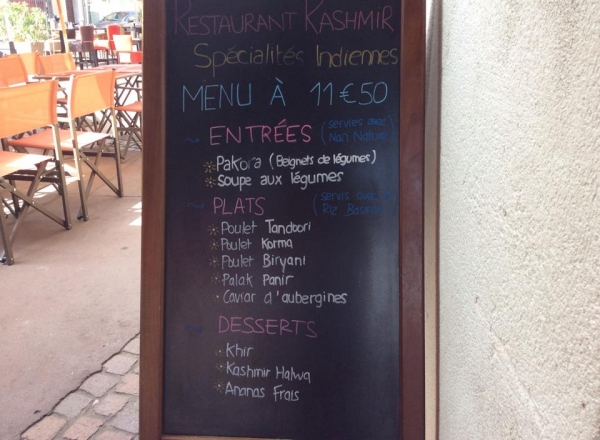 RESTAURANT KASHMIR
Spécialités Indiennes
MENU À 11€50
ENTRÉES (servies avec
Nan Nature)
Pakora (Beignets de légumes)
Soupe aux légumes
PLATS (servis avec
Riz Basmati)
Poulet Tandoori
Poulet Korma
Poulet Biryani
Palak Panir
Caviar d'aubergines
DESSERTS
Khir
Kashmir Halwa
Ananas Frais